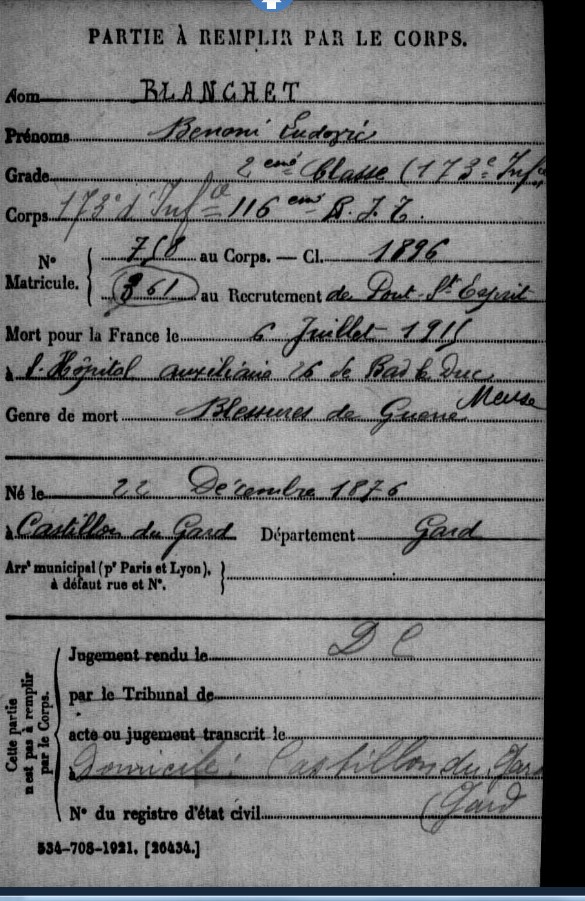 PARTIE À REMPLIR PAR LE CORPS.
Nom BLANCHET
Prénoms Benoni Ludovic
Grade 2eme Classe (173e Infie
Corps 173e d'Infie 116eme R.I.T.
N° Matricule. 758 au Corps. — Cl. 1896
361 au Recrutement de Pont St Esprit
Mort pour la France le 6 Juillet 1915
à l'Hôpital auxiliaire 26 de Bar le Duc
Meuse
Genre de mort Blessures de Guerre
Né le 22 Décembre 1876
à Castillon du Gard Département Gard
Arrt municipal (pr Paris et Lyon),
à défaut rue et N°.
Cette partie n'est pas à remplir par le Corps.
Jugement rendu le D C
par le Tribunal de
acte ou jugement transcrit le
à Domicile: Castillon du Gard
(Gard
N° du registre d'état civil
534-708-1921. [26434.]